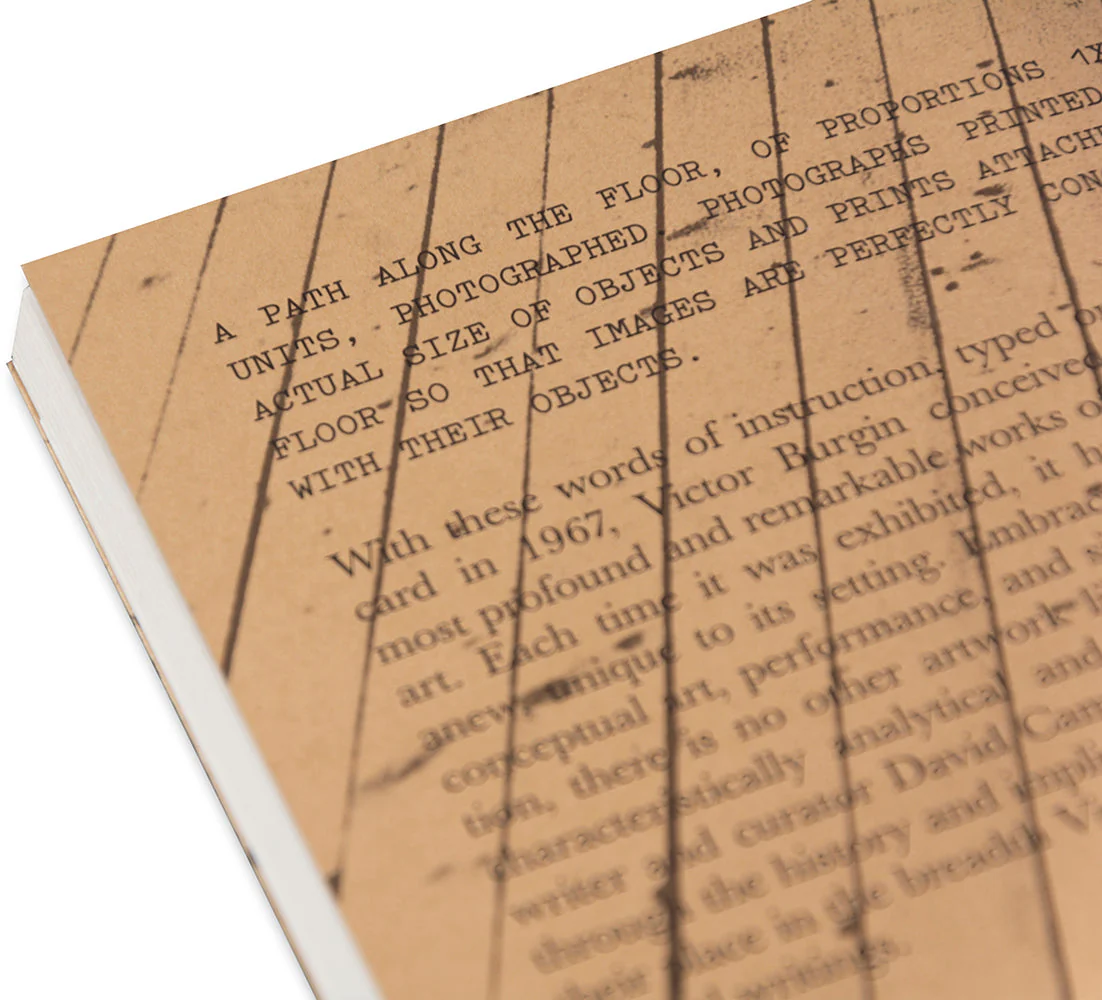 A PATH ALONG THE FLOOR, OF PROPORTIONS 1X
UNITS, PHOTOGRAPHED. PHOTOGRAPHS PRINTED
ACTUAL SIZE OF OBJECTS AND PRINTS ATTACHE
FLOOR SO THAT IMAGES ARE PERFECTLY CON
WITH THEIR OBJECTS.
With these words of instruction, typed on
card in 1967, Victor Burgin conceived
most profound and remarkable works o
art. Each time it was exhibited, it h
anew, unique to its setting. Embrac
conceptual art, performance, and s
tion, there is no other artwork li
characteristically analytical and
writer and curator David Cam
through the history and impli
their place in the breadth V
writings.